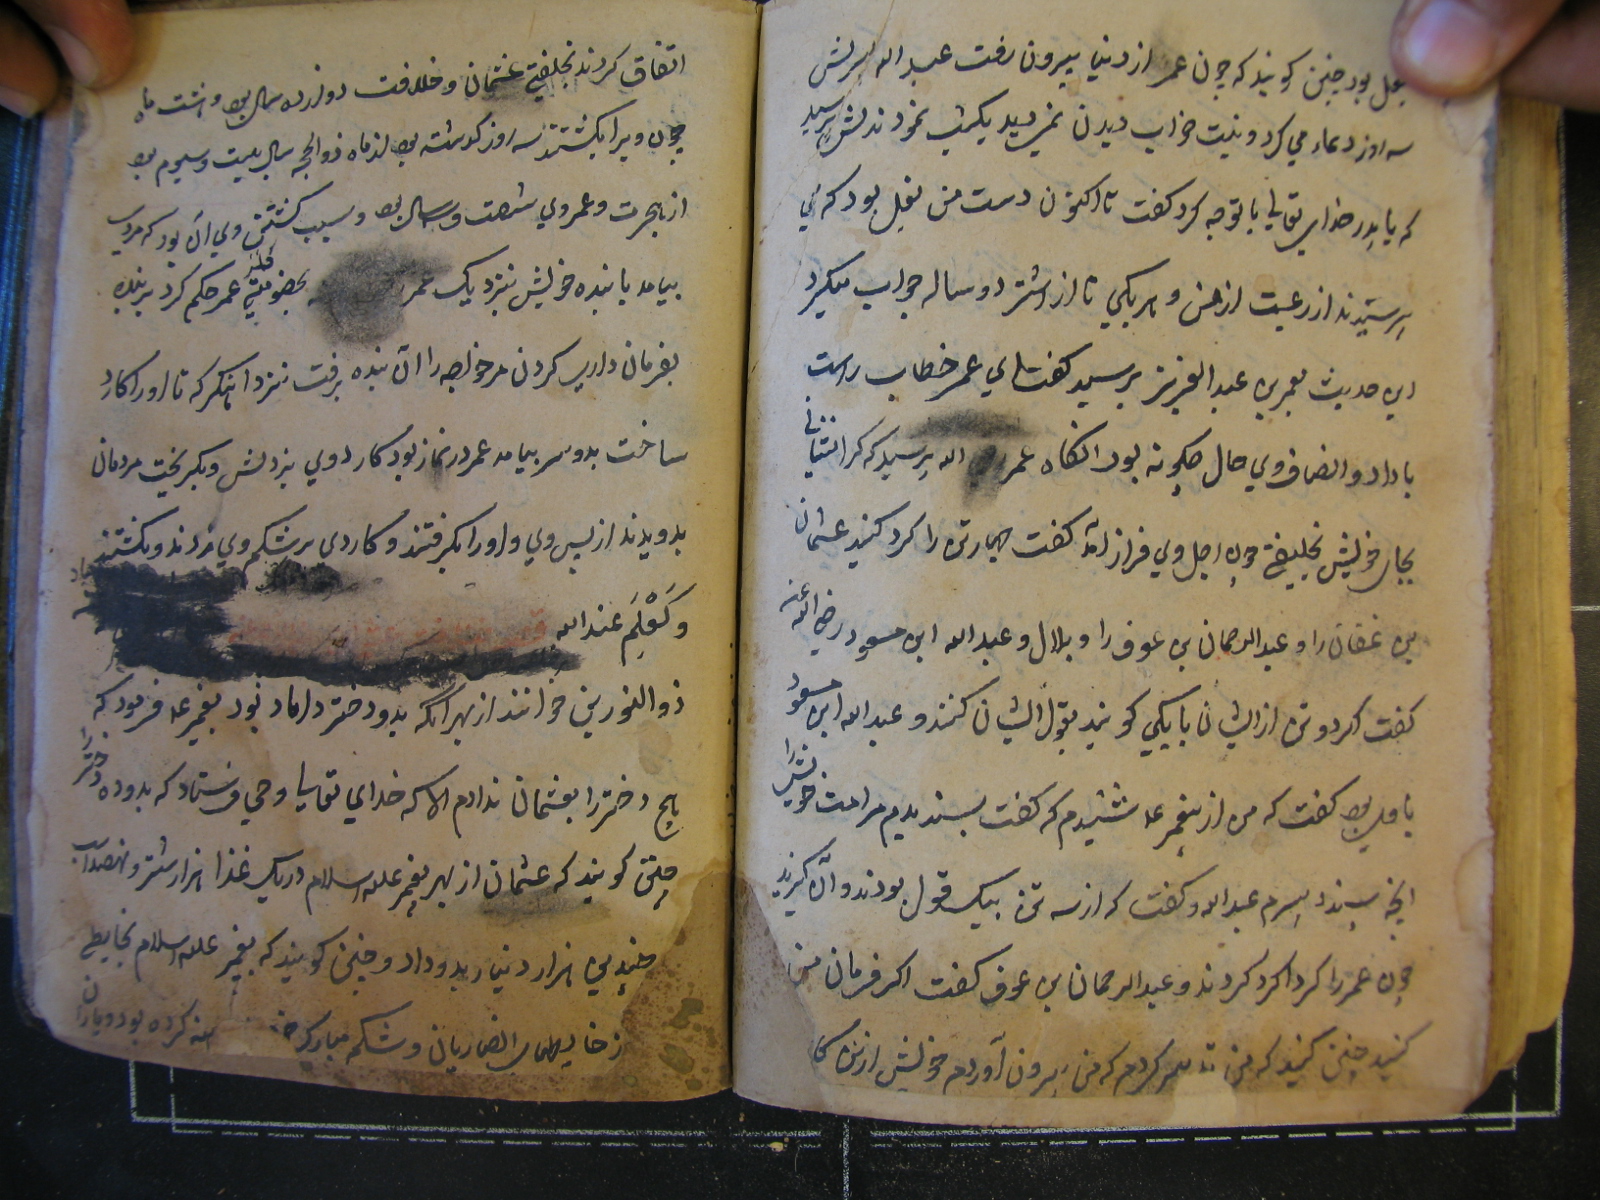 بغل بود چنین کویند که چون عمر از دنیا بیرون رفت عبد الله پسرش
سه روز دعا می کرد و نیت خواب دیدن نمی دید یکشب نمودندش پرسید
که یا پدر خدای تعالی با تو چه کرد کفت تا اکنون دست من بغل بود که می
پرستیدند از رعیت از من و هر یکی تا از اشتر دو ساله جواب میکرد
این حدیث بعمر بن عبد العزیز برسید کفت ای عمر خطاب راست
با داد و انصاف وی حال چکونه بود آنکاه عمر الله پرسید که کرا نشانی
بجای خویش بخلیفتی چون اجل وی فراز آمد کفت چهار تن را کرد کنید عثمان
بن عفان را و عبد الرحمان بن عوف را و بلال و عبد الله ابن مسعود رضی الله عنه
کفت اکر دو تن از ایشان با یکی کویند بقول ایشان کنند و عبد الله ابن مسعود
با وی بود کفت که من از پیغمبر عم شنیدم که کفت بسندیدم مر امت خویش را
آنچه بسندد پسرم عبد الله و کفت که از سه تن بیک قول بودند و آن کیرید
چون عمر را کرد کردند و عبد الرحمان بن عوف کفت اکر فرمان من
کنید چنین کنید که من کردم که من بیرون آوردم خویش ازین کا
اتفاق کردند بخلیفتی عثمان و خلافت دوازده سال بود و هشت ماه
چون ویرا بکشتند سه روز کذشته بود از ماه ذو الحجه سال بیست و سیوم بود
از هجرت و عمر وی شصت و سه سال بود و سبب کشتن وی آن بود که مردی
بیامد با بنده خویش بنزدیک عمر بخصومتی عمر حکم کرد بر بنده
بفرمان داری کردن مر خواجه را آن بنده برفت نزد آهنکر که تا او را کارد
ساخت بدو سر بیامد عمر در نماز بود کارد وی بزدش و بکریخت مردمان
بدویدند از پس وی و او را بکرفتند و کاردی بر شکم وی زدند و بکشتند
و کعلم عند الله
ذو النورین خوانند از بهر آنکه بدو دختر داماد بود پیغمبر عم فرمود که
هیچ دختر را بعثمان ندادم الا که خدای تعالی وحی فرستاد که بدو ده دختر را
چنین کویند که عثمان از بهر پیغمبر علیه السلام در یک غذا هزار شتر و نهصد اسب
چندین هزار دینار بدو داد و چنین کویند که پیغمبر علیه السلام بحایطی
انصاریان و شکم مبارک کرده بود و یاران